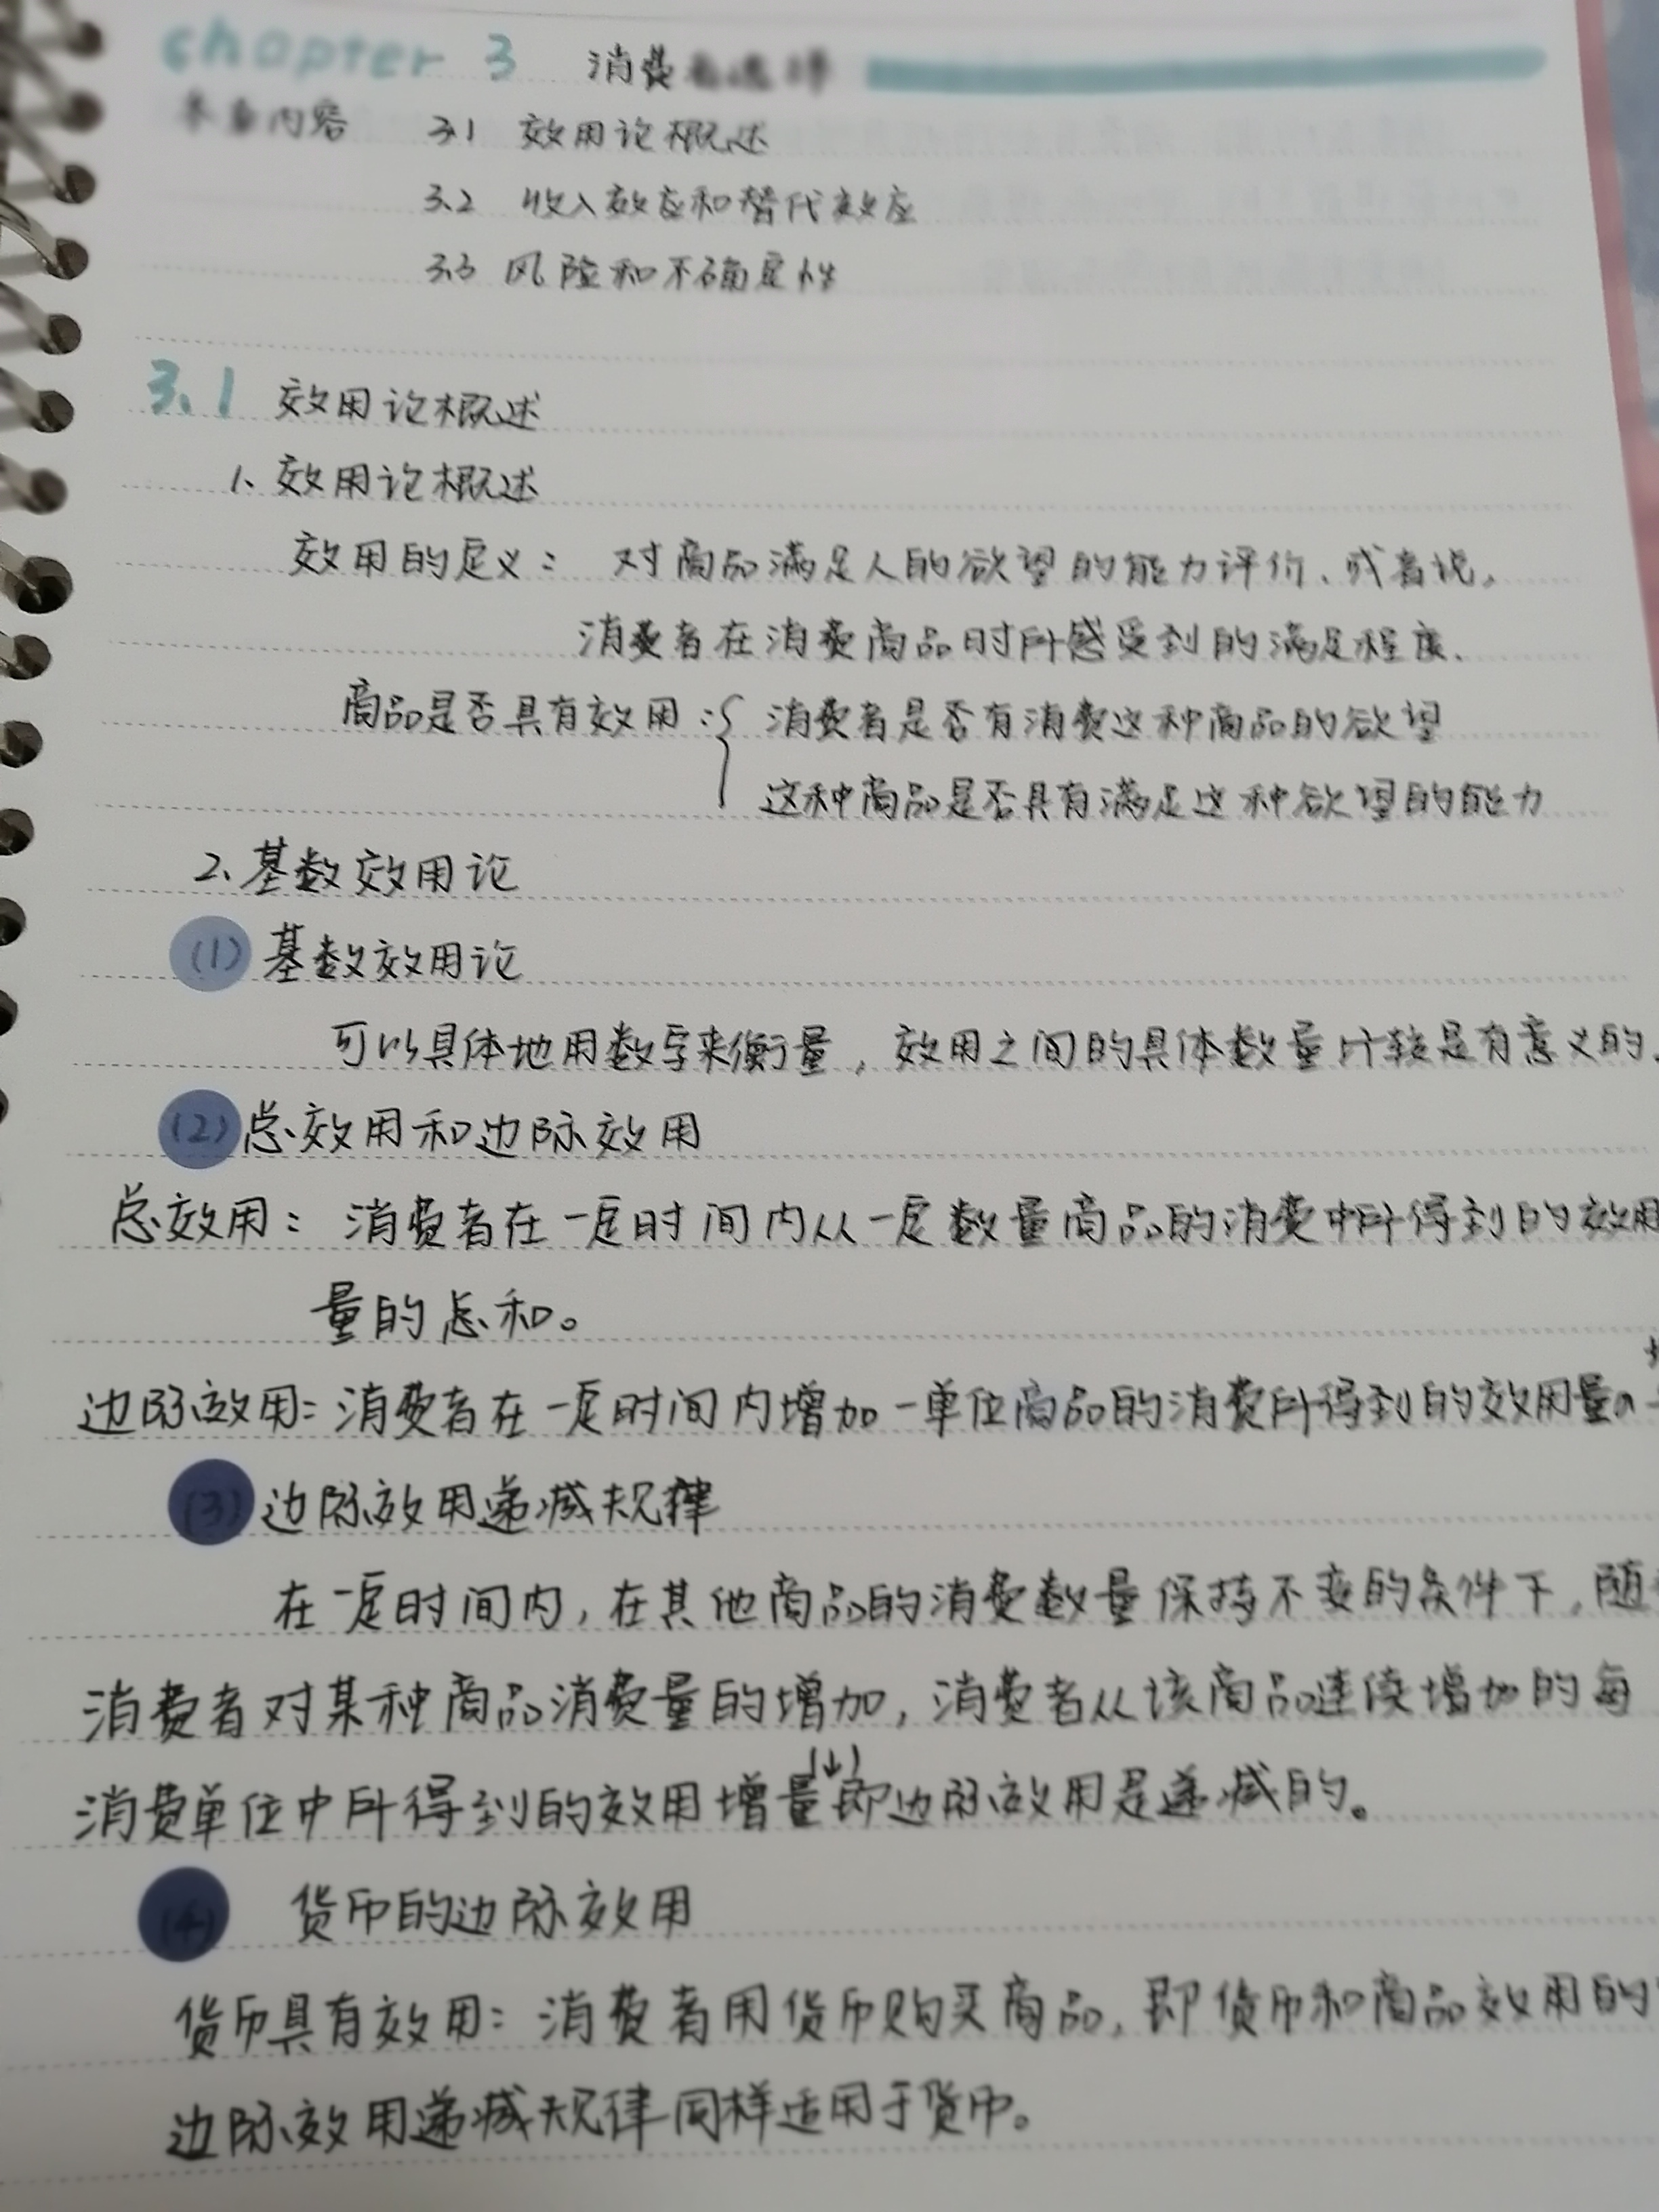 chapter 3 消费者选择
本章内容 3.1 效用论概述
3.2 收入效应和替代效应
3.3 风险和不确定性
3.1 效用论概述
1、效用论概述
效用的定义：对商品满足人的欲望的能力评价、或者说，
消费者在消费商品时所感受到的满足程度、
商品是否具有效用：{ 消费者是否有消费这种商品的欲望
这种商品是否具有满足这种欲望的能力
2、基数效用论
(1) 基数效用论
可以具体地用数字来衡量，效用之间的具体数量比较是有意义的、
(2) 总效用和边际效用
总效用：消费者在一定时间内从一定数量商品的消费中所得到的效用
量的总和。
边际效用：消费者在一定时间内增加一单位商品的消费所得到的效用量的
(3) 边际效用递减规律
在一定时间内，在其他商品的消费数量保持不变的条件下，随
消费者对某种商品消费量的增加，消费者从该商品连续增加的每
消费单位中所得到的效用增量(↓)即边际效用是递减的。
(4) 货币的边际效用
货币具有效用：消费者用货币购买商品，即货币和商品效用的
边际效用递减规律同样适用于货币。